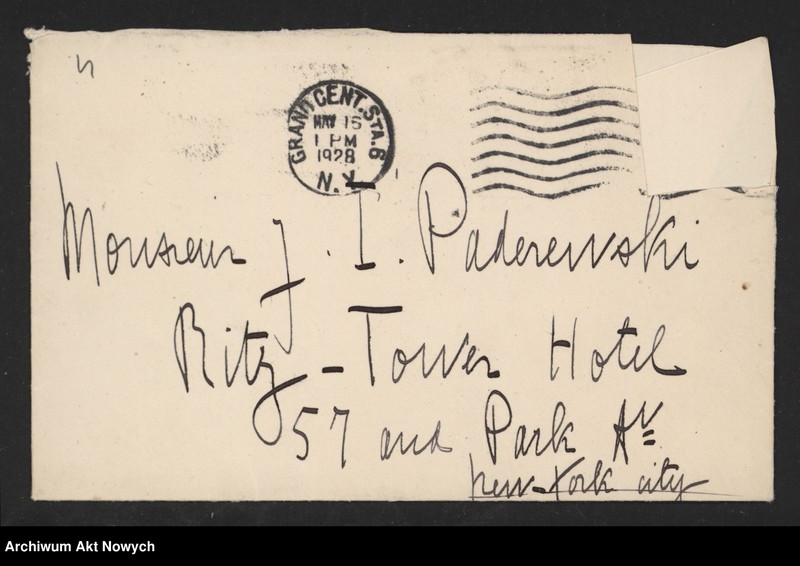 GRAND CENT. STA. 6
MAY 15
1 PM
1928
N.Y.
Monsieur J. I. Paderewski
Ritz-Tower Hotel
57 and Park Av
New-York city
Archiwum Akt Nowych